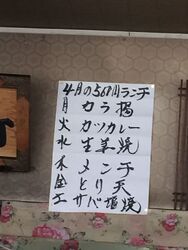 4月の560円ランチ
月 カラ揚
火 カツカレー
水 生姜焼
木 メンチ
金 とり天
土 サバ塩焼